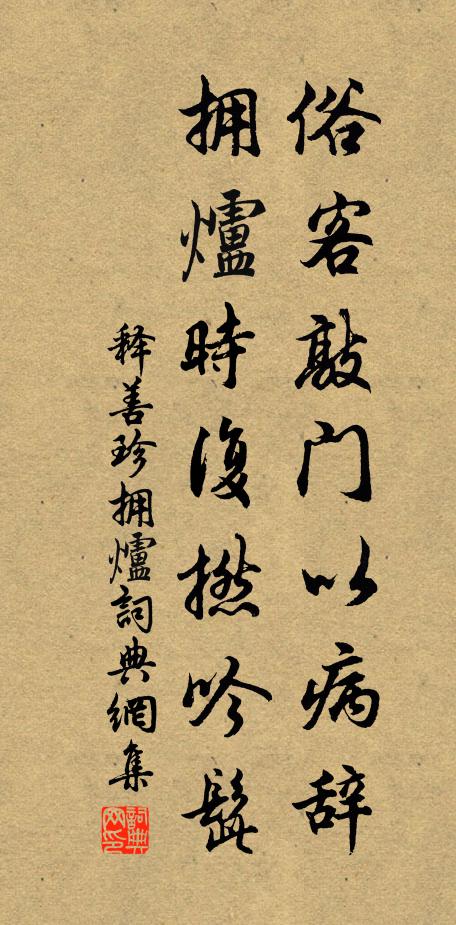 俗客敲门以病辞
拥爐時復撚吟髭
释善珍拥爐詞典網集
詞典网印